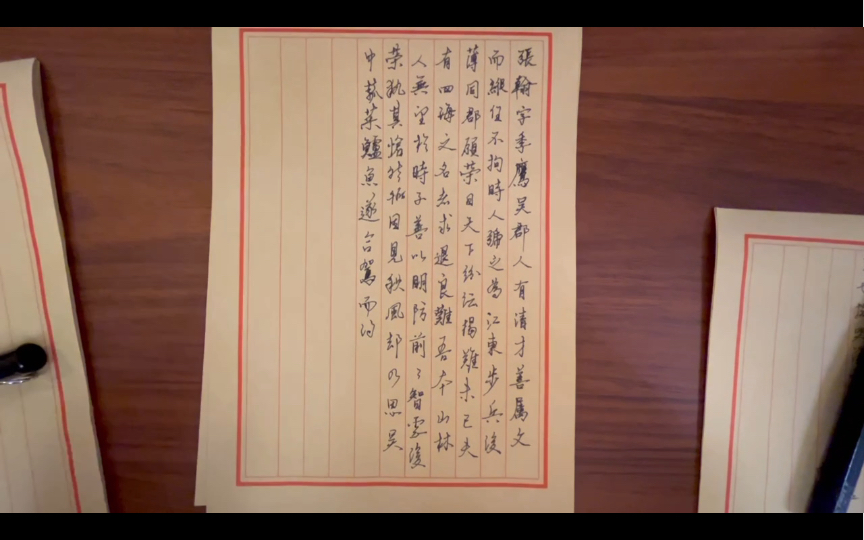 張翰字季鷹吳郡人有清才善屬文
而縱任不拘時人號之為江東步兵後
同郡顧榮曰天下紛紜難未已夫
有四海之名者求退良難吾本山林
人無望於時子善以明防前智慮後
榮執其愴然翰因見秋風乃思吳
中菰菜鱸魚遂命駕而歸